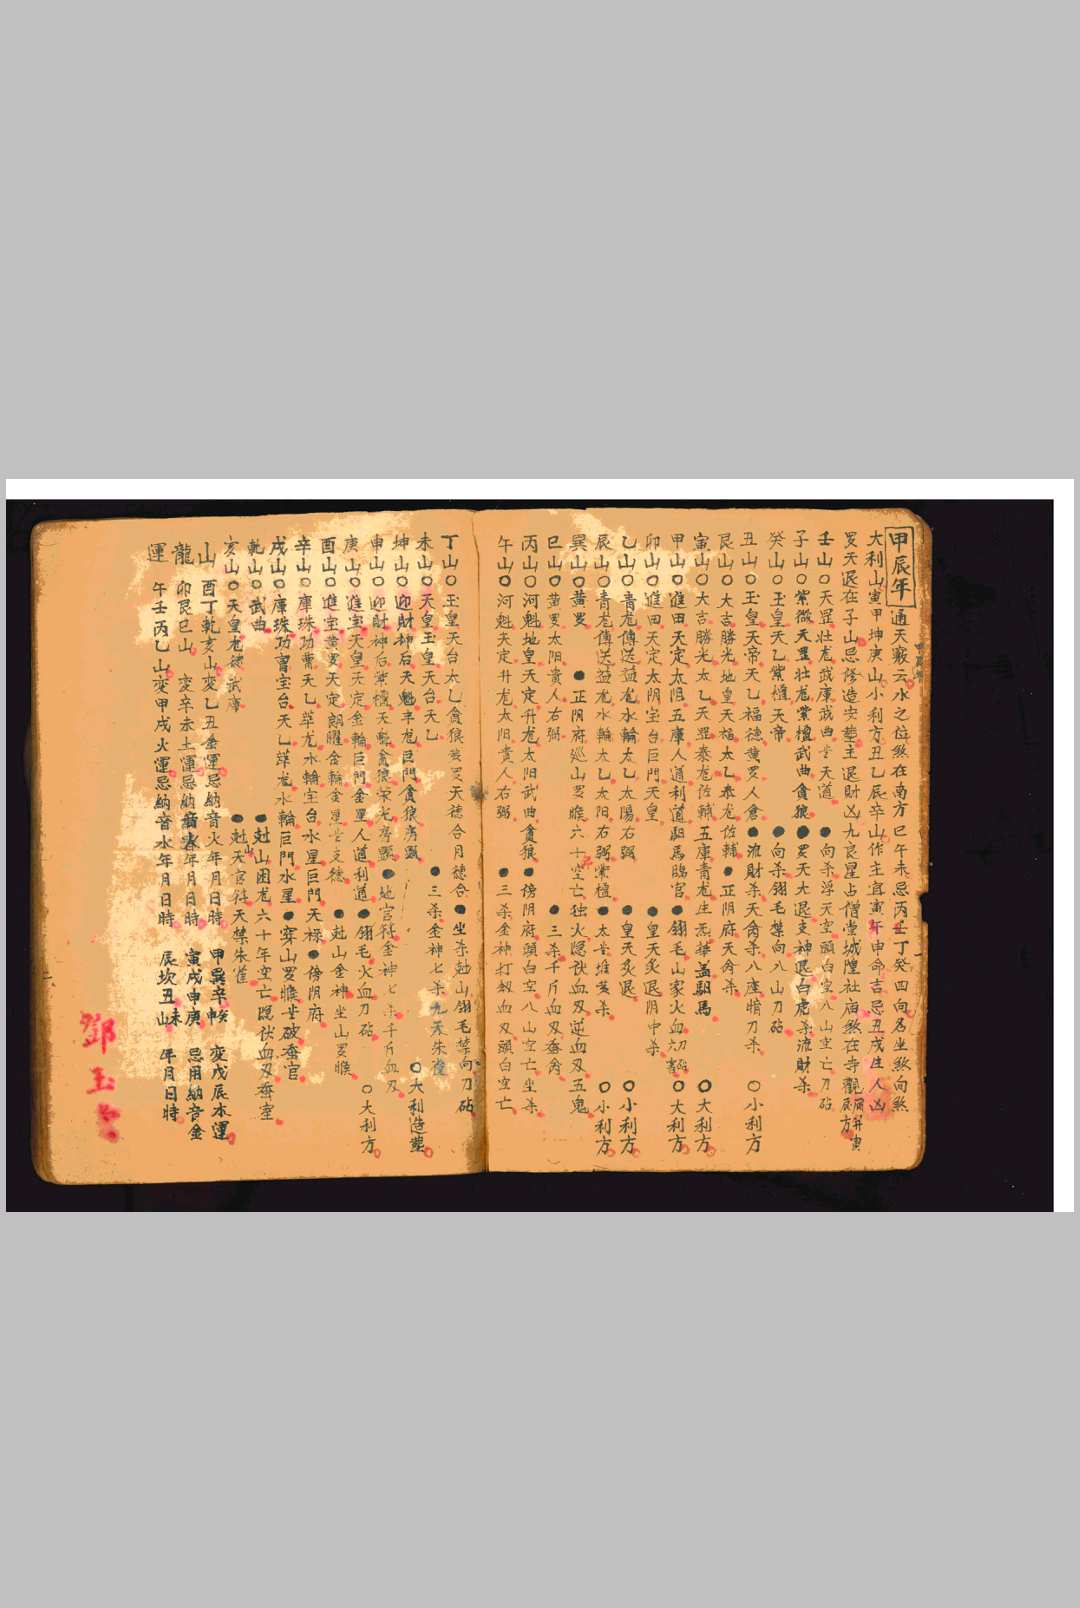 甲辰年 通天竅云水之位煞在南方巳午未忌丙壬丁癸四向名坐煞向煞
大利山寅甲坤庚山小利方丑乙辰辛山作主宜寅午申命吉忌丑戌生人凶
罗天退在子山忌修造安塟主退財凶九良星占僧堂城隍社庙煞在寺觀
壬山○天罡壮龙武庫武曲 天道●向杀浮天空頭白空八山空亡刀砧
子山○紫微天罡壮龙紫檀武曲貪狼●罗天大退支神退白虎杀流財杀
癸山○玉皇天乙紫檀天帝●向杀翎毛禁向八山刀砧
丑山○玉皇天帝天乙福德黄罗人倉●流財杀天禽杀八座 刀杀○小利方
艮山○大吉勝光地皇天福太乙泰龙佐輔●正阴府天禽杀
寅山○大吉勝光太乙天罡泰龙佐輔五庫青龙生炁華盖馹馬○大利方
甲山○進田天定太阳五庫人道利道馹馬臨官●翎毛山家火血刃砧○大利方
卯山○進田天定太阴宝台巨門天皇●皇天炙退阴中杀
乙山○青龙傳送益龙水輪太乙太陽右弼●皇天炙退○小利方
辰山○青龙傳送益龙水輪太乙太阳右弼紫檀●太 堆黄杀○小利方
巽山○黄罗●正阴府廵山罗睺六十空亡独火隐伏血刃逆血刃五鬼
巳山○黄罗太阳貴人右弼●三杀千斤血刃
丙山○河魁地皇天定升龙太阳武曲貪狼●傍阴府頭白空八山空亡坐杀
午山○河魁天定升龙太阳貴人右弼●三杀金神打劫血刃頭白空亡
丁山○玉皇天台太乙貪狼黄罗天德合月德合●坐杀尅山翎毛禁向刀砧
未山○天皇玉皇天台天乙●三杀金神七杀九天朱雀○大利造塟
坤山○迎財神后天魁丰龙巨門貪狼房顯
申山○迎財神后紫檀天魁貪狼榮光房顯●地官符金神七杀千斤血刃
庚山○進宝天皇天定金輪巨門金星人道利道●翎毛火血刀砧○大利方
酉山○進宝黄罗天定朗曜金輪金星 支德●尅山金神坐山罗睺
辛山○庫珠功曹天乙萃龙水輪宝台水星巨門天禄●傍阴府
戌山○庫珠功曹宝台天乙萃龙水輪巨門水星●穿山罗睺 破 官
乾山○武曲●尅山困龙六十年空亡隐伏血刃 室
亥山○天皇龙德武庫●尅天官符天禁朱雀
山 酉丁乾亥山変乙丑金運忌納音火年月日時 甲巽辛 変戊辰木運
龍 卯艮巳山 変辛未土運忌納音 年月日時 寅戌申庚 忌用納音金
運 午壬丙乙山変甲戌火運忌納音水年月日時 辰坎丑未山 年月日時
鄧玉